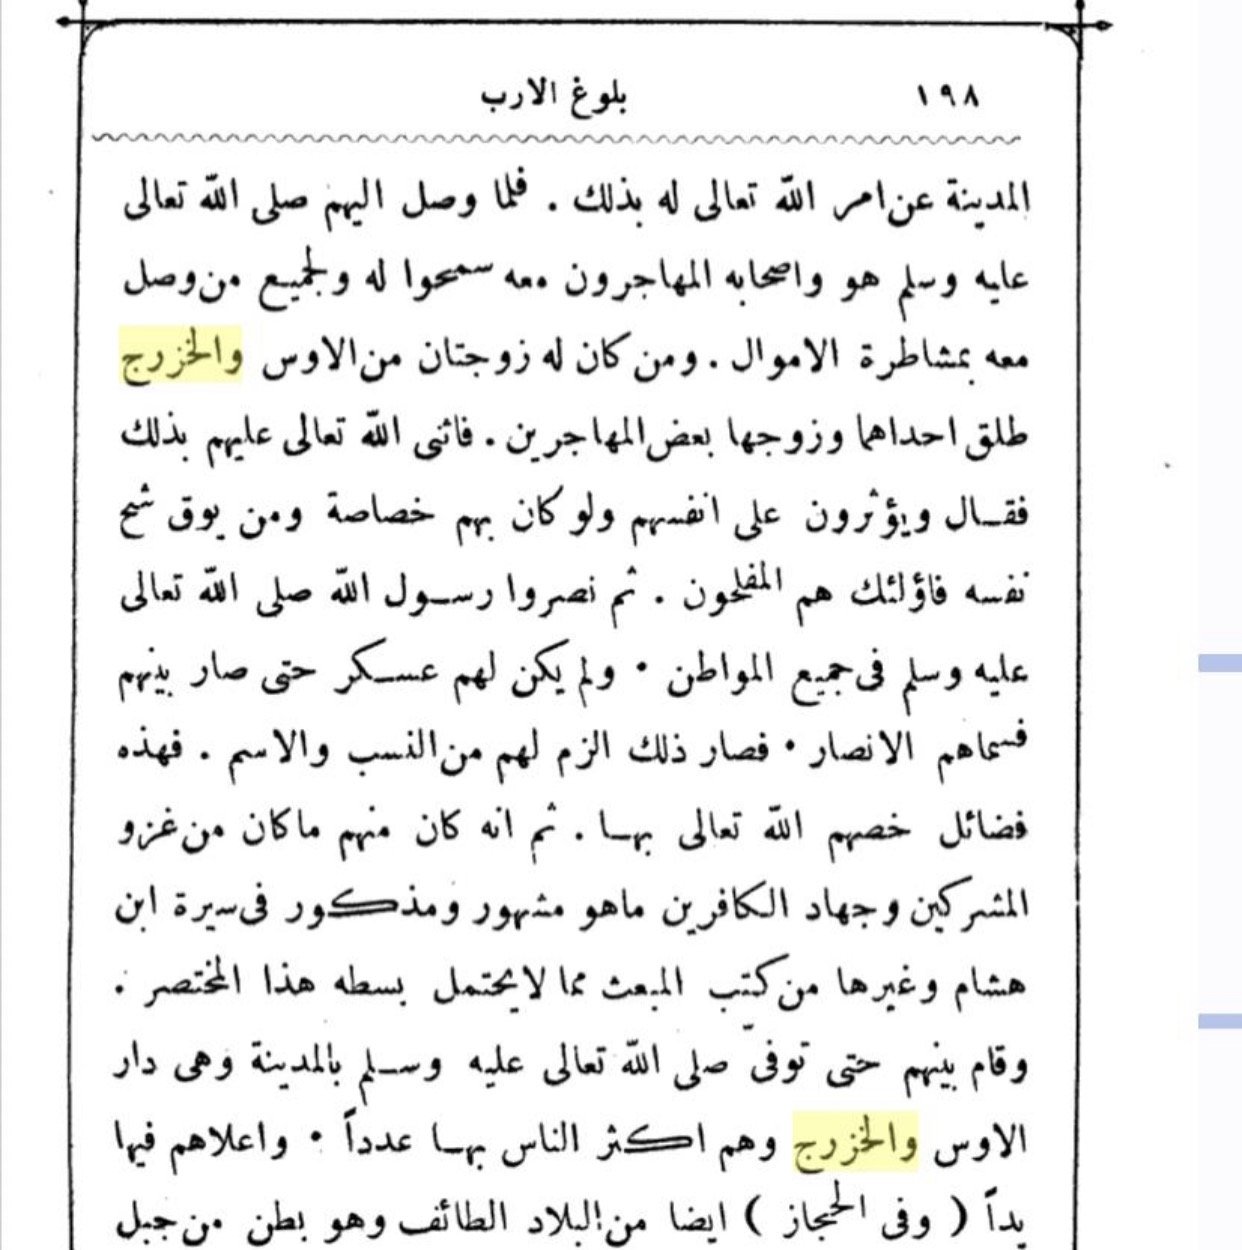 ١٩٨
بلوغ الارب
المدينة عن امر الله تعالى له بذلك . فلما وصل اليهم صلى الله تعالى
عليه وسلم هو واصحابه المهاجرون معه سمحوا له ولجميع من وصل
معه بمشاطرة الاموال . ومن كان له زوجتان من الاوس والخزرج
طلق احداهما وزوجها بعض المهاجرين . فاثنى الله تعالى عليهم بذلك
فقال ويؤثرون على انفسهم ولو كان بهم خصاصة ومن يوق شح
نفسه فاؤلئك هم المفلحون . ثم نصروا رسول الله صلى الله تعالى
عليه وسلم فى جميع المواطن . ولم يكن لهم عسكر حتى صار بينهم
فسماهم الانصار . فصار ذلك الزم لهم من النسب والاسم . فهذه
فضائل خصهم الله تعالى بها . ثم انه كان منهم ماكان من غزو
المشركين وجهاد الكافرين ماهو مشهور ومذكور فى سيرة ابن
هشام وغيرها من كتب المبعث مما لايحتمل بسطه هذا المختصر .
وقام بينهم حتى توفىّ صلى الله تعالى عليه وسلم بالمدينة وهى دار
الاوس والخزرج وهم اكثر الناس بها عدداً . واعلاهم فيها
يداً ( وفى الحجاز ) ايضا من البلاد الطائف وهو بطن من جبل